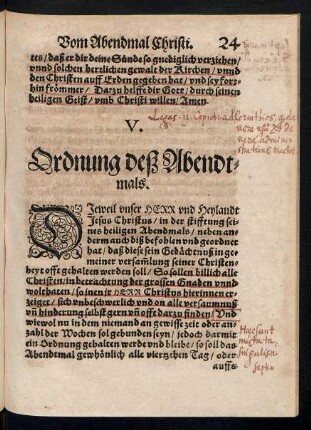 Vom Abendmal Christi. 24
tes/ daß er dir deine Sünde so gnediglich verziehen/
vnnd solchen herrlichen gewalt der Kirchen/ vnnd
den Christen auff Erden gegeben hat/ vnd sey fort-
hin frömmer/ Dazu helffe dir Gott/ durch seinen
heiligen Geist/ vmb Christi willen/ Amen.
V.
Ordnung deß Abendt-
mals.
DJeweil vnser HERR vnd Heylandt
Jesus Christus/ in der stifftung sei-
nes heiligen Abendmals/ neben an-
derm auch diß befohlen vnd geordnet
hat/ daß diese sein Gedächtnuß in ge-
meiner versamlung seiner Christen-
heyt offt gehalten werden soll/ So sollen billich alle
Christen/ in betrachtung der grossen Gnaden vnnd
wolthaten/ so jnen jr HERR Christus hierinnen er-
zeiget/ sich vnbeschwerlich vnd on alle versaumnuß
vñ hinderung selbst gern vñ offt darzu finden/ Vnd
wiewol nu in dem niemand an gewisse zeit oder an-
zahl der Wochen sol gebunden seyn/ jedoch darmit
ein Ordnung gehalten werde vnd bleibe/ so soll das
Abendtmal gewöhnlich alle viertzehen Tag/ oder
auffs
Hoc sunt
mutata,